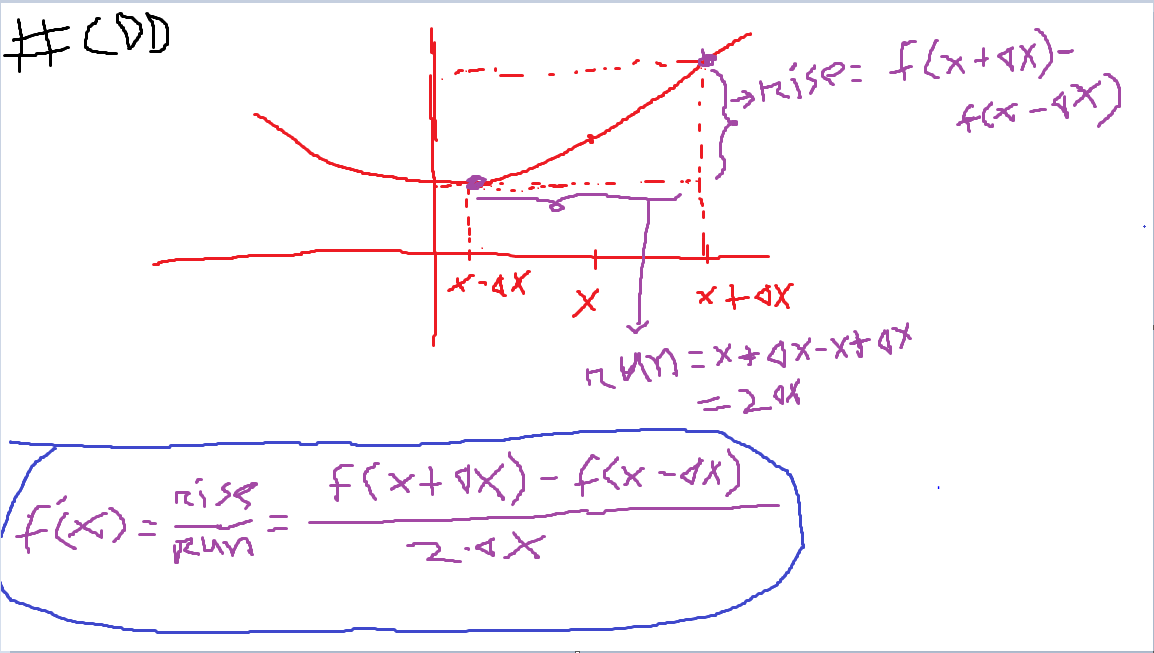 # CDD
rise = f(x+Δx)-
f(x-Δx)
x-Δx
x
x+Δx
run = x+Δx-x+Δx
= 2Δx
f'(x) = rise/run = f(x+Δx) - f(x-Δx) / 2·Δx